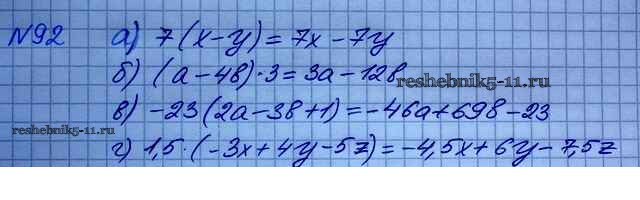 №92 а) 7(x-y)=7x-7y
б) (a-4в)·3=3a-12в
reshebnik5-11.ru
в) -23(2a-3в+1)=-46a+69в-23
reshebnik5-11.ru
г) 1,5·(-3x+4y-5z)=-4,5x+6y-7,5z